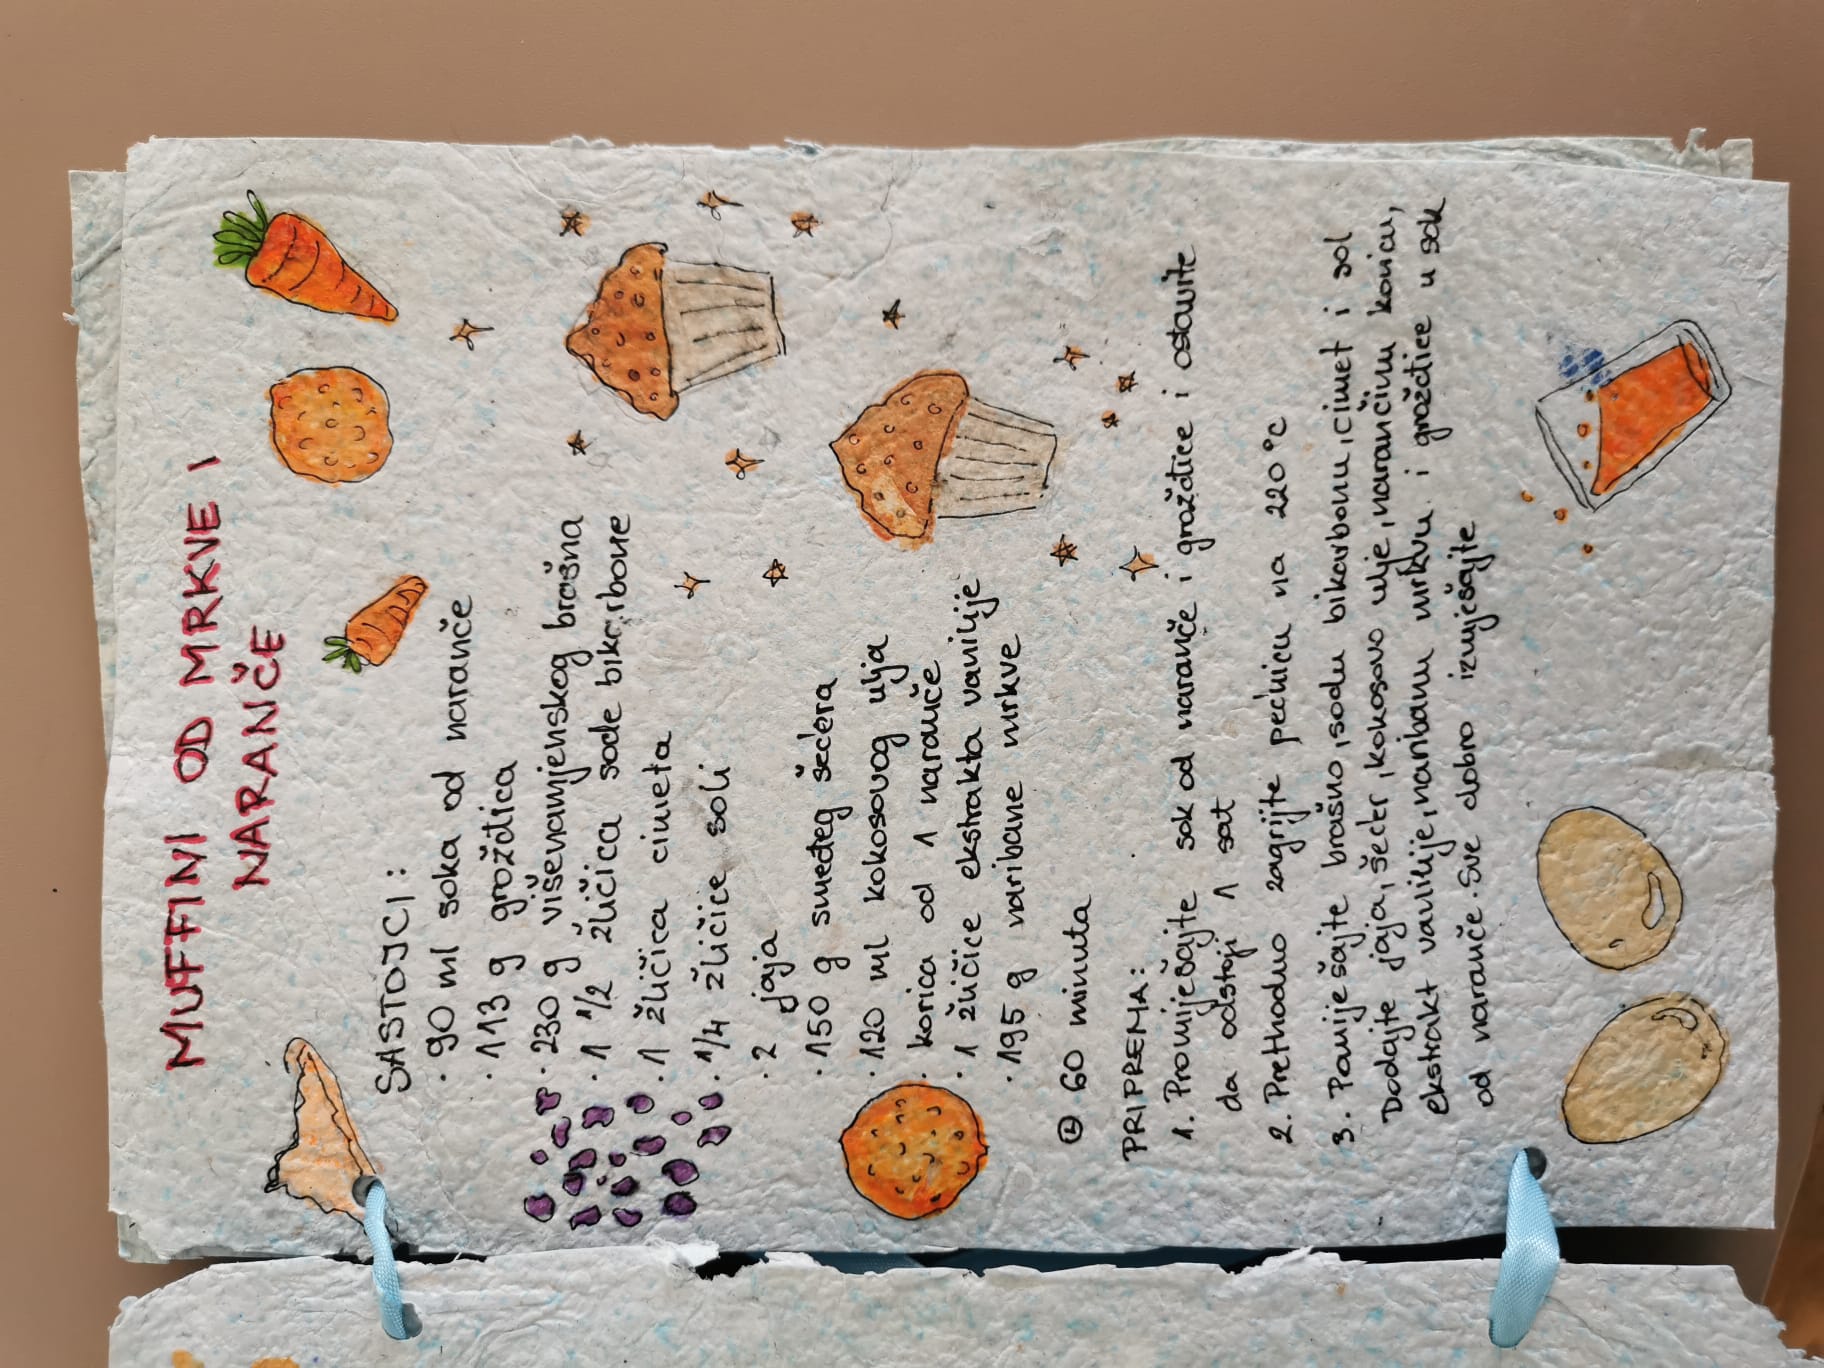 MUFFINI OD MRKVE I
NARANČE
SASTOJCI:
· 90 ml soka od naranče
· 113 g grožđica
· 230 g višenamjenskog brašna
· 1 1/2 žličica sode bikarbone
· 1 žličica cimeta
· 1/4 žličice soli
· 2 jaja
· 150 g smeđeg šećera
· 120 ml kokosovog ulja
· korica od 1 naranče
· 1 žličice ekstrakta vanilije
· 195 g naribane mrkve
60 minuta
PRIPREMA:
1. Promiješajte sok od naranče i grožđice i ostavite
da odstoji 1 sat
2. Prethodno zagrijte pećnicu na 220°C
3. Pomiješajte brašno, sodu bikarbonu, cimet i sol
Dodajte jaja, šećer, kokosovo ulje, narančinu koricu,
ekstrakt vanilije, naribanu mrkvu i grožđice u sok
od naranče. Sve dobro izmješajte